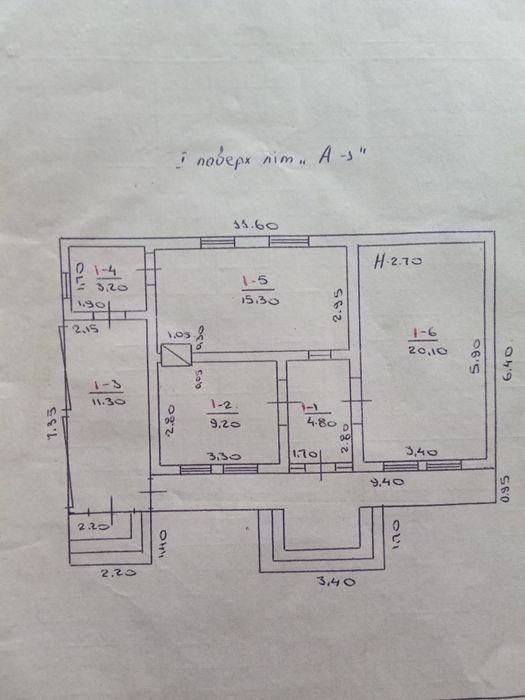 I поверх літ „А-1"
11.60
H-2.70
1-4
3,20
1.70
1.90
1-5
15.30
2.95
1-6
20,10
5.90
6.40
2.15
1.05
0.30
0.05
1-3
11.30
7.35
1-2
9.20
2.80
3.30
1-1
4.80
2.80
1.70
3,40
9.40
0.95
2.20
1.40
2.20
1.70
3,40